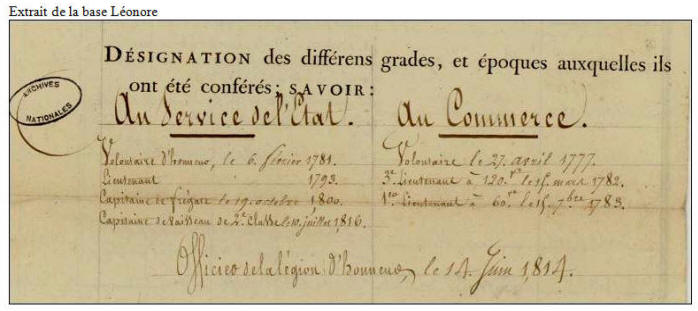 Extrait de la base Léonore
DÉSIGNATION des différens grades, et époques auxquelles ils
ont été conférés; SAVOIR:
ARCHIVES
NATIONALES
Au Service de l'État.
Volontaire d'honneur, le 6. février 1781.
Lieutenant 1793.
Capitaine de frégate le 19. octobre 1,800.
Capitaine de Vaisseau de 2e. Classe le 10. juillet 1,816.
Au Commerce.
Volontaire le 27. avril 1777.
3e. Lieutenant à 120 le 15. mars 1782.
1er. Lieutenant à 60 le 15. 7bre 1783.
Officier de la légion d'honneur, le 14. Juin 1,814.